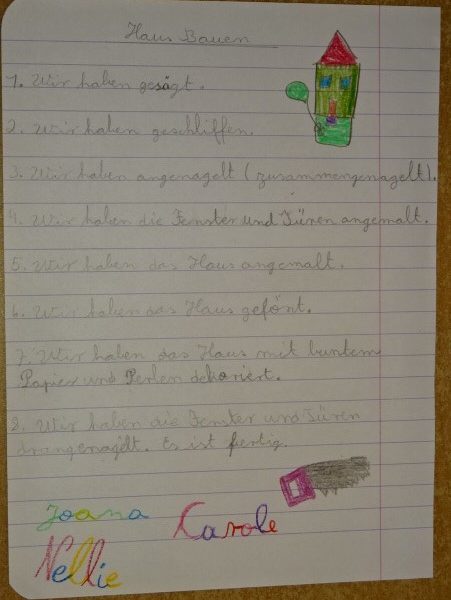 Haus Bauen
1. Wir haben gesägt.
2. Wir haben geschliffen.
3. Wir haben angenagelt (zusammengenagelt).
4. Wir haben die Fenster und Türen angemalt.
5. Wir haben das Haus angemalt.
6. Wir haben das Haus gefönt.
7. Wir haben das Haus mit buntem
Papier und Perlen dekoriert.
8. Wir haben die Fenster und Türen
drangenagelt. Es ist fertig.
Joana Carole
Nellie